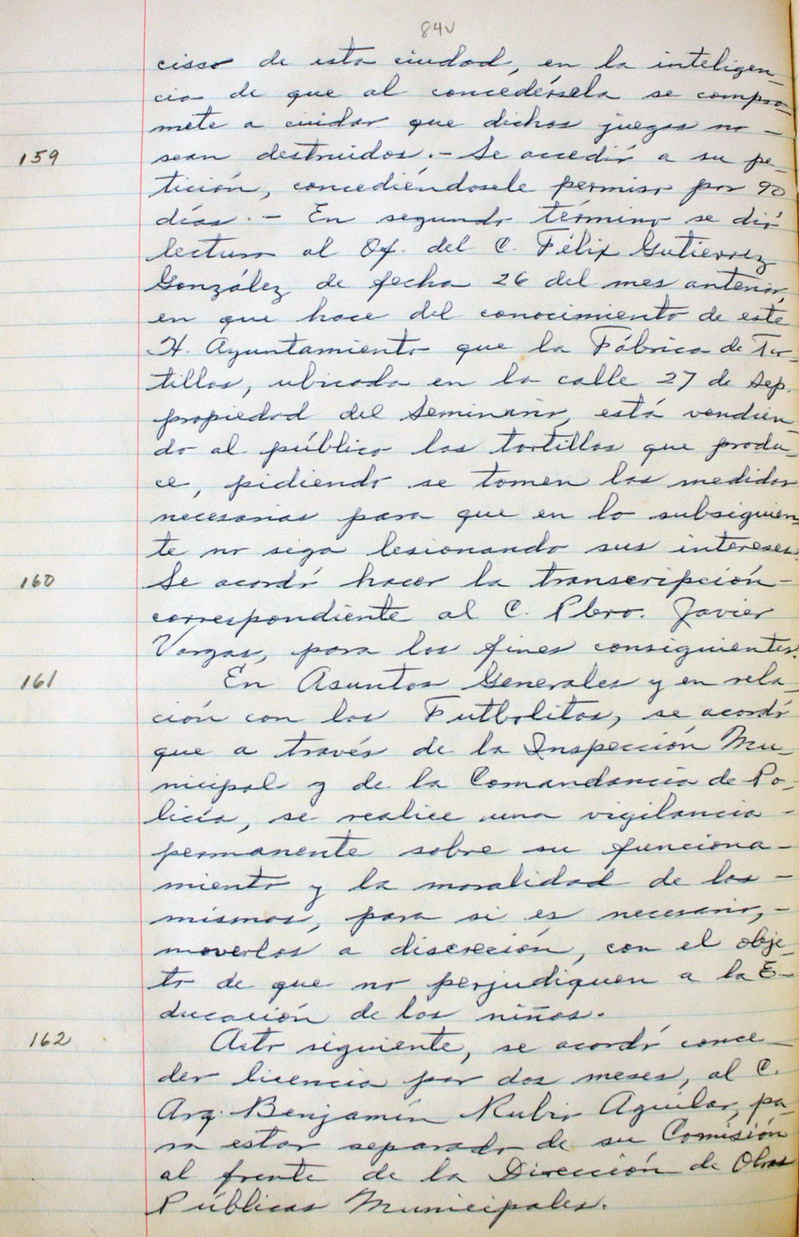 84v
cisco de esta ciudad, en la inteligen-
cia de que al concedérsela se compro-
mete a cuidar que dichos juegos no -
159 sean destruidos.- Se accedió a su pe-
tición, concediéndosele permiso por 90
días.- En segundo término se dió
lectura al Of. del C. Félix Gutierrez
González de fecha 26 del mes anterior,
en que hace del conocimiento de este
H. Ayuntamiento que la Fábrica de Tor-
tillas, ubicada en la calle 27 de Sep.
propiedad del Seminario, está vendien-
do al público las tortillas que produ-
ce, pidiendo se tomen las medidas
necesarias para que en lo subsiguien-
te no siga lesionando sus intereses.
160 Se acordó hacer la transcripción -
correspondiente al C. Pbro. Javier
Vargas, para los fines consiguientes.
161 En Asuntos Generales y en rela-
ción con los Futbolitos, se acordó
que a través de la Inspección Mu-
nicipal y de la Comandancia de Po-
licía, se realice una vigilancia -
permanente sobre su funciona-
miento y la moralidad de los -
mismos, para si es necesario, -
moverlos a discreción, con el obje-
to de que no perjudiquen a la E-
ducación de los niños.
162 Acto siguiente, se acordó conce-
der licencia por dos meses, al C.
Arq. Benjamín Rubio Aguilar, pa-
ra estar separado de su Comisión
al frente de la Dirección de Obras
Públicas Municipales.